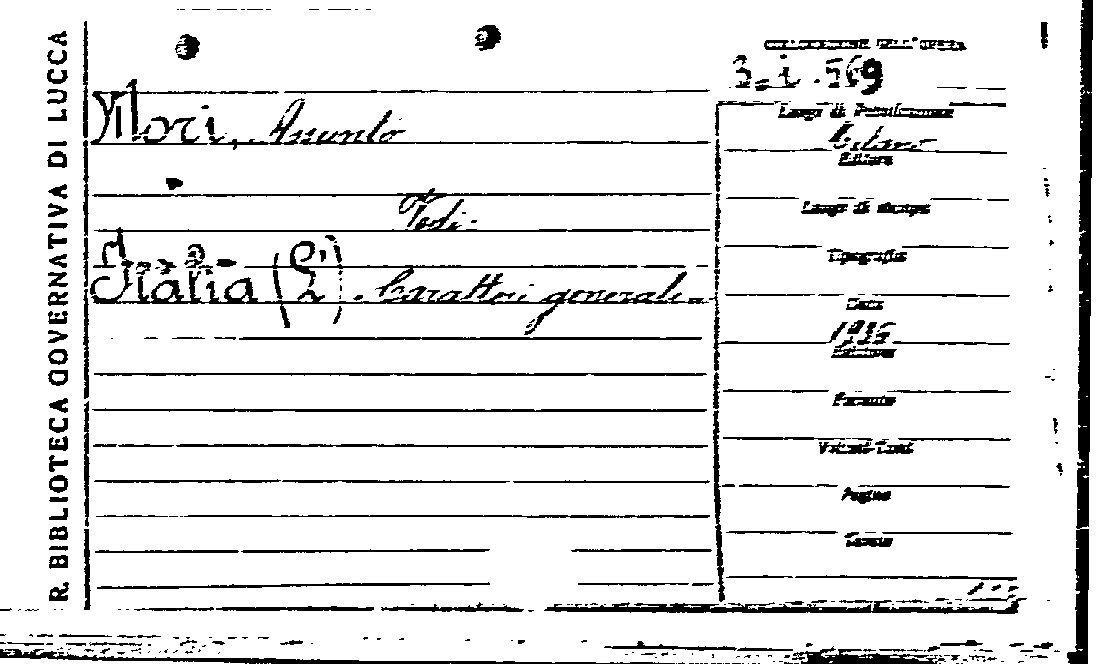 R. BIBLIOTECA GOVERNATIVA DI LUCCA
COLLOCAZIONE DELL'OPERA
3. i. 569
Mori, Assunto
Vedi:
Italia (L'). Caratteri generali.
Luogo di Pubblicazione
Milano
Editore
Luogo di stampa
Tipografia
Data
1936
Edizione
Formato
Volumi-Tomi
Pagine
Tavole